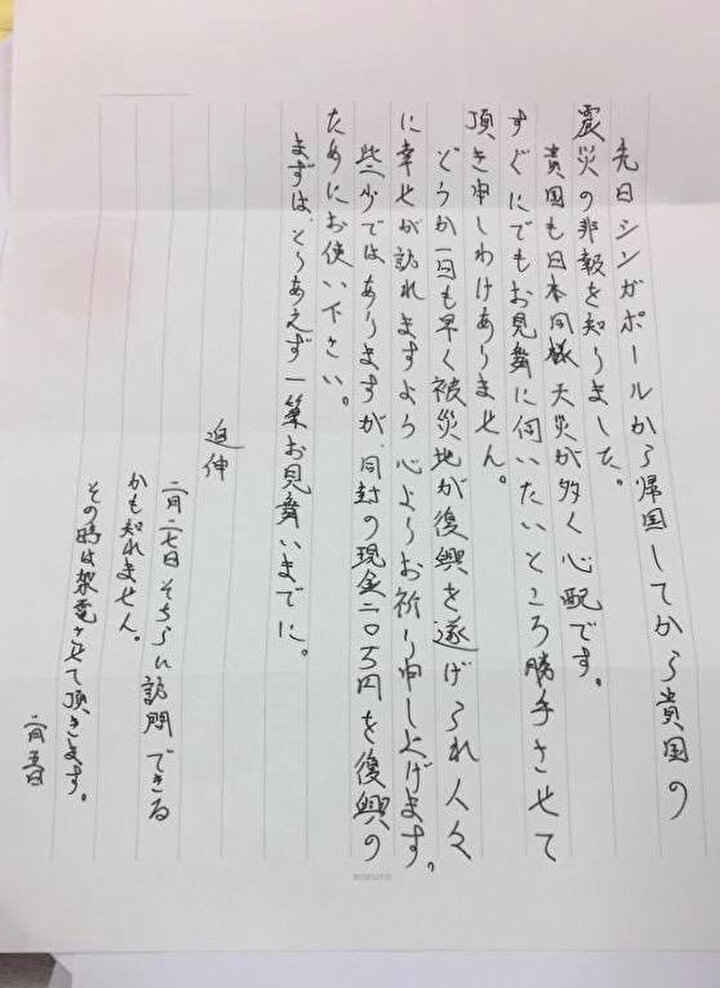 先日シンガポールから帰国してから貴国の
震災の悲報を知りました。
貴国も日本同様天災が多く心配です。
すぐにでもお見舞に伺いたいところ勝手させて
頂き申しわけありません。
どうか一日も早く被災地が復興を遂げられ人々
に幸せが訪れますよう心よりお祈り申し上げます。
些少ではありますが、同封の現金二〇万円を復興の
ためにお使い下さい。
まずは、とりあえず一筆お見舞いまでに。
追伸
二月二七日そちらに訪問できる
かも知れません。
その時は架電させて頂きます。
二月五日